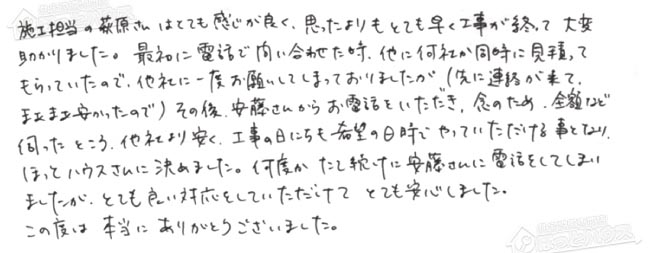 施工担当の萩原さんはとても感じが良く、思ったよりもとても早く工事が終って大変
助かりました。最初に電話で問い合わせた時、他に何社か同時に見積って
もらっていたので、他社に一度お願いしてしまっておりましたが(先に連絡が来て、
まあまあ安かったので)その後、安藤さんからお電話をいただき、念のため、金額など
伺ったところ、他社より安く、工事の日にちも希望の日時でやっていただける事となり、
ほっとハウスさんに決めました。何度かたて続けに安藤さんに電話をしてしまい
ましたが、とても良い対応をしていただけてとても安心しました。
この度は本当にありがとうございました。